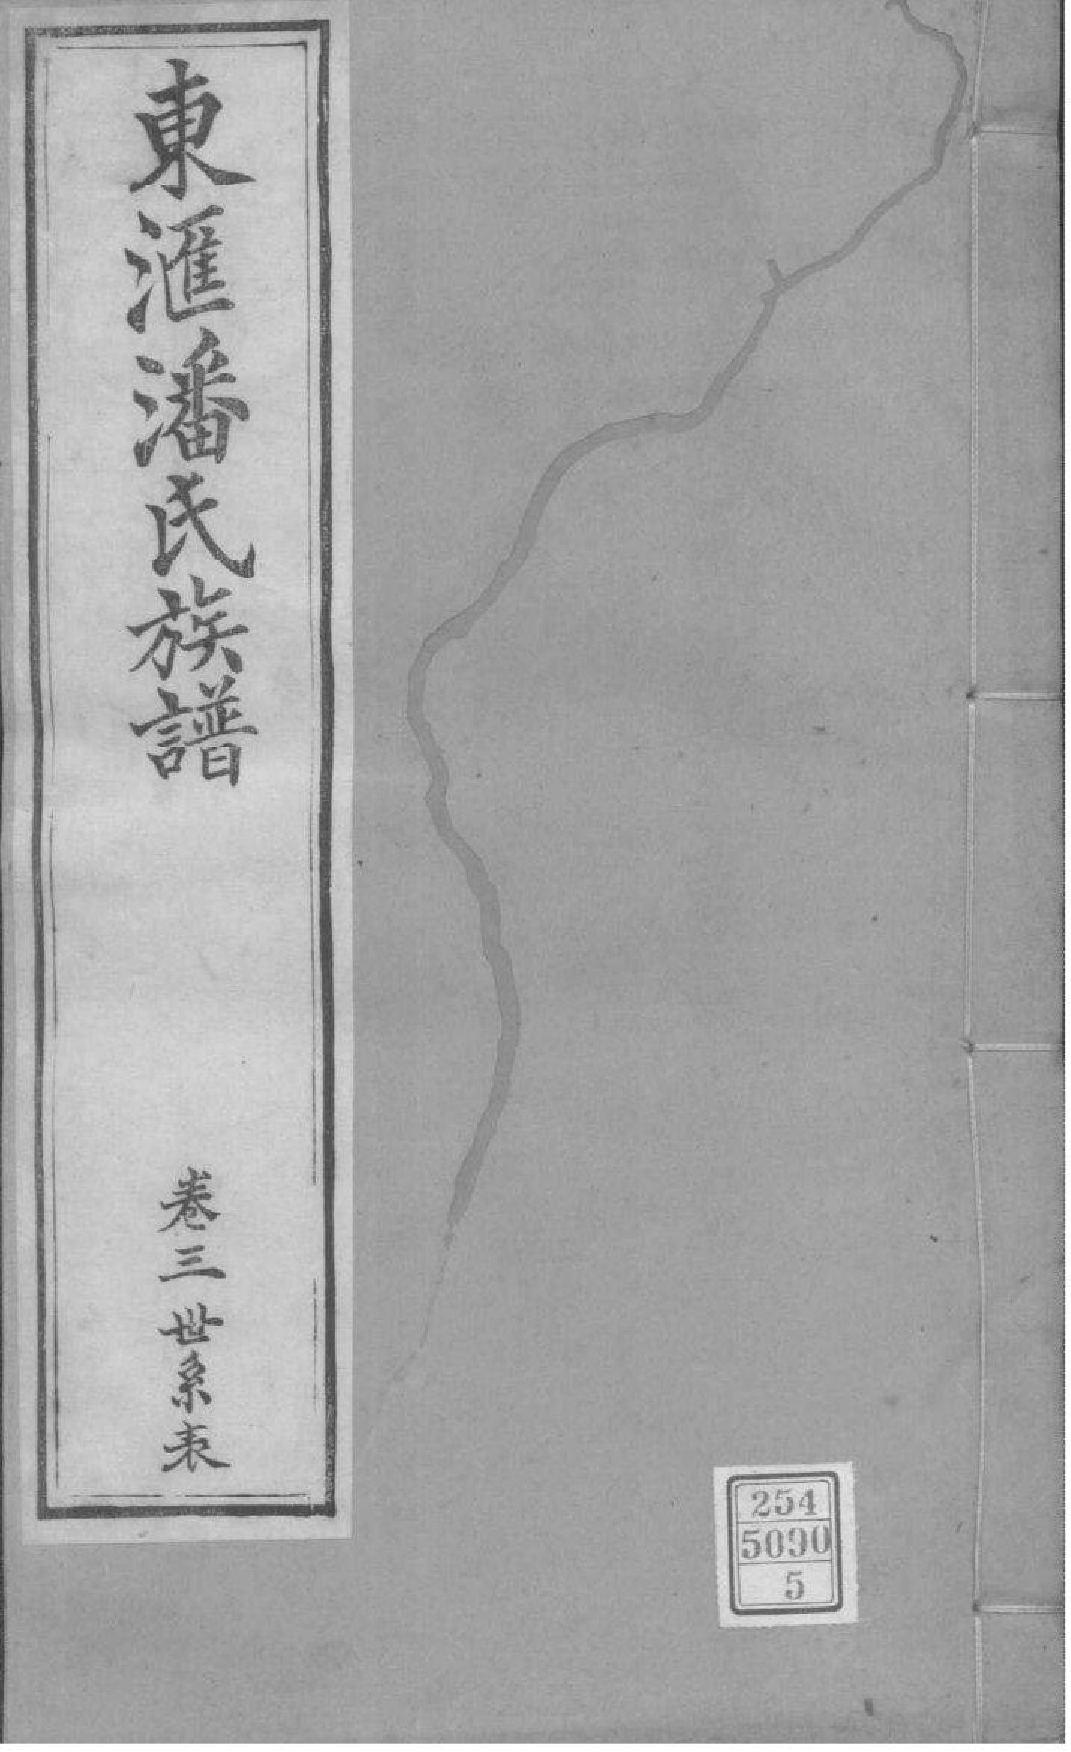 東滙潘氏族譜
卷三世系表
254
5090
5